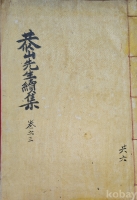 先生續集
卷之三
共六
kobay